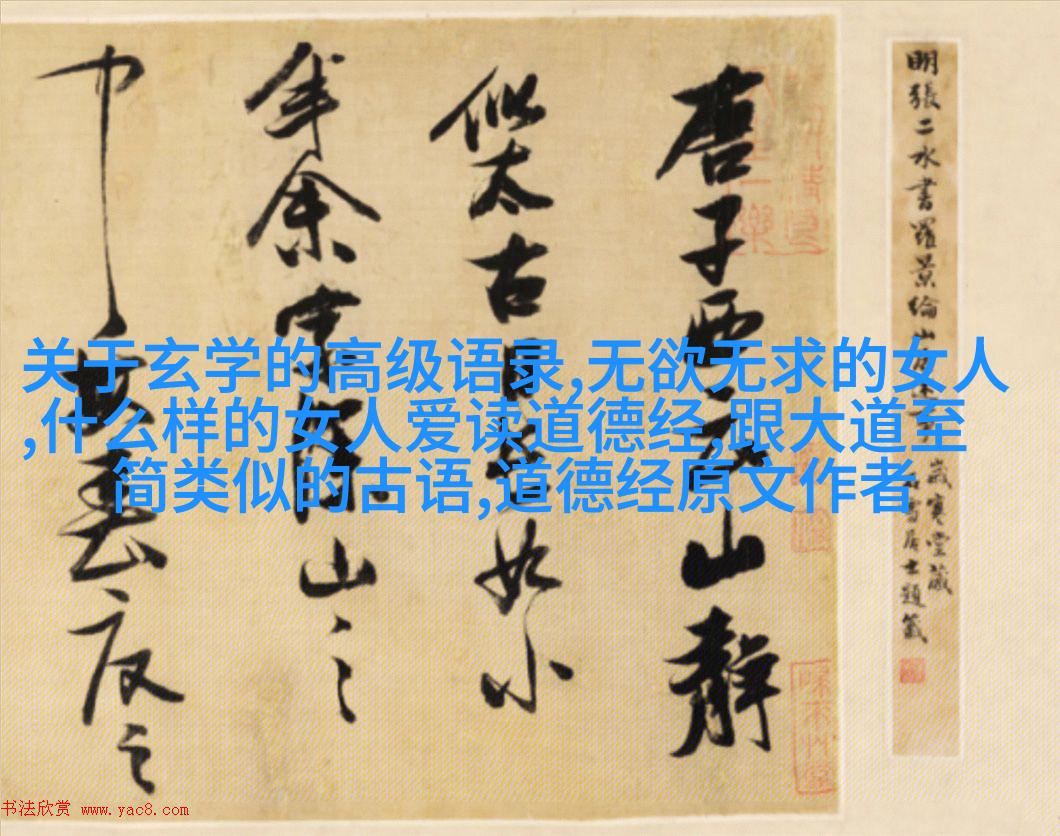 明張二水書羅景綸山
歲寒堂藏
居士題籤
唐子西云山靜
似太古日長如小
年余家深山之
中每春夏之
关于玄学的高级语录,无欲无求的女人
,什么样的女人爱读道德经,跟大道至
简类似的古语,道德经原文作者
书法欣赏 www.yac8.com